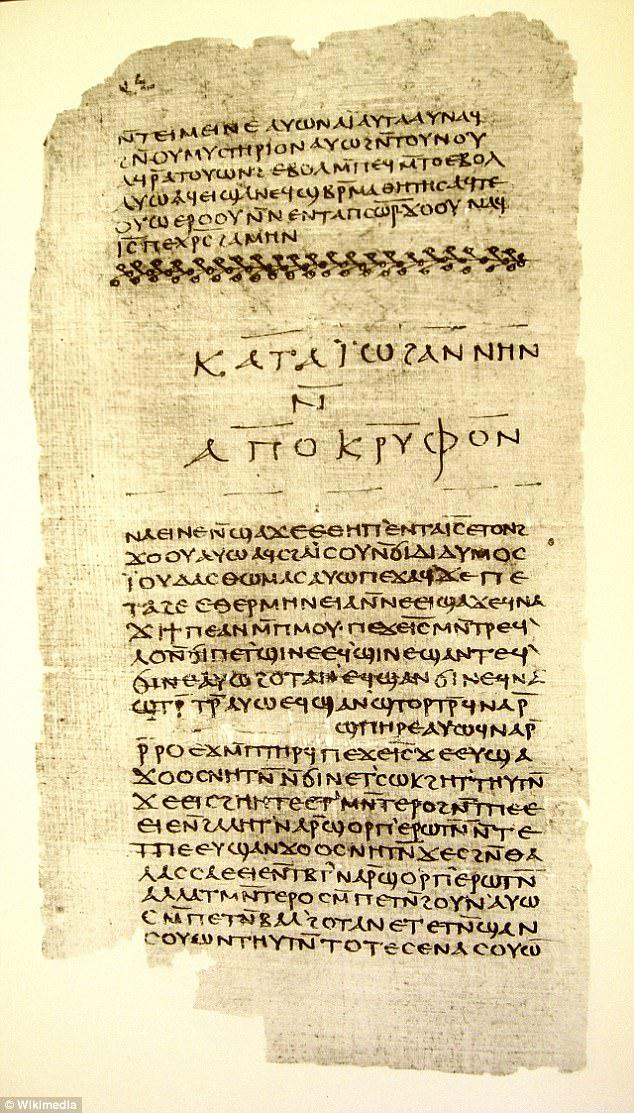 ⲛ̄ⲧⲉⲓⲙⲉⲓⲛⲉ ⲁⲩⲱ ⲛⲁⲓ̈ ⲁⲩⲧⲁⲁⲩ ⲛⲁϥ
ϩⲛ̄ ⲟⲩⲙⲩⲥⲧⲏⲣⲓⲟⲛ ⲁⲩⲱ ϩⲛ̄ ⲧⲟⲩⲛⲟⲩ
ⲁϥⲣ̄ⲁⲧⲟⲩⲱⲛϩ ⲉⲃⲟⲗ ⲙ̄ⲡⲉϥⲙ̄ⲧⲟ ⲉⲃⲟⲗ
ⲁⲩⲱ ⲁϥⲉⲓ ϣⲁ ⲛⲉϥϣⲃⲣ̄ⲙⲁⲑⲏⲧⲏⲥ ⲁϥⲧⲉ
ⲟⲩⲱ ⲉⲣⲟⲟⲩ ⲛ̄ⲛⲉⲛⲧⲁⲡⲥⲱ̅ⲣ̅ ϫⲟⲟⲩ ⲛⲁϥ
ⲓ̅ⲥ̅ ⲡⲉⲭⲣ̅ⲥ̅ ϩⲁⲙⲏⲛ
ⲕⲁⲧⲁ ⲓ̈ⲱϩⲁⲛⲛⲏⲛ
ⲛ̄
ⲁⲡⲟⲕⲣⲩⲫⲟⲛ
ⲛⲁⲉⲓ ⲛⲉ ⲛ̄ϣⲁϫⲉ ⲉⲑⲏⲡ ⲉⲛⲧⲁ ⲓ̅ⲥ̅ ⲉⲧⲟⲛϩ
ϫⲟⲟⲩ ⲁⲩⲱ ⲁϥⲥϩⲁⲓ̈ⲥⲟⲩ ⲛ̄ϭⲓ ⲇⲓⲇⲩⲙⲟⲥ
ⲓ̈ⲟⲩⲇⲁⲥ ⲑⲱⲙⲁⲥ ⲁⲩⲱ ⲡⲉϫⲁϥ ϫⲉ ⲡⲉ
ⲧⲁϩⲉ ⲉⲑⲉⲣⲙⲏⲛⲉⲓⲁ ⲛ̄ⲛⲉⲉⲓϣⲁϫⲉ ϥⲛⲁ
ϫⲓ ϯⲡⲉ ⲁⲛ ⲙ̄ⲡⲙⲟⲩ ⲡⲉϫⲉ ⲓ̅ⲥ̅ ⲙⲛ̄ⲧⲣⲉϥ
ⲗⲟ ⲛ̄ϭⲓ ⲡⲉⲧϣⲓⲛⲉ ⲉϥϣⲓⲛⲉ ϣⲁⲛⲧⲉϥ
ϭⲓⲛⲉ ⲁⲩⲱ ϩⲟⲧⲁⲛ ⲉϥϣⲁⲛϭⲓⲛⲉ ϥⲛⲁ
ϣⲧⲣ̄ⲧⲣ̄ ⲁⲩⲱ ⲉϥϣⲁⲛϣⲧⲟⲣⲧⲣ̄ ϥⲛⲁⲣ̄
ϣⲡⲏⲣⲉ ⲁⲩⲱ ϥⲛⲁⲣ̄
ⲣ̄ⲣⲟ ⲉϫⲙ̄ ⲡⲧⲏⲣϥ ⲡⲉϫⲉ ⲓ̅ⲥ̅ ϫⲉ ⲉⲩϣⲁ
ϫⲟⲟⲥ ⲛⲏⲧⲛ̄ ⲛ̄ϭⲓ ⲛⲉⲧⲥⲱⲕ ϩⲏⲧ ⲧⲏⲩⲧⲛ̄
ϫⲉ ⲉⲓⲥϩⲏⲏⲧⲉ ⲉⲧⲙⲛ̄ⲧⲉⲣⲟ ϩⲛ̄ ⲧⲡⲉ ⲉ
ⲉⲓⲉ ⲛ̄ϩⲁⲗⲏⲧ ⲛⲁⲣ̄ ϣⲟⲣⲡ ⲉⲣⲱⲧⲛ̄ ⲛ̄ⲧⲉ
ⲧⲡⲉ ⲉⲩϣⲁⲛϫⲟⲟⲥ ⲛⲏⲧⲛ̄ ϫⲉ ⲥϩⲛ̄ ⲑⲁ
ⲗⲁⲥⲥⲁ ⲉⲉⲓⲉ ⲛ̄ⲧⲃⲧ ⲛⲁⲣ̄ ϣⲟⲣⲡ ⲉⲣⲱⲧⲛ̄
ⲁⲗⲗⲁ ⲧⲙⲛ̄ⲧⲉⲣⲟ ⲥⲙ̄ⲡⲉⲧⲛ̄ϩⲟⲩⲛ ⲁⲩⲱ
ⲥⲙ̄ⲡⲉⲧⲛ̄ⲃⲁⲗ ϩⲟⲧⲁⲛ ⲉⲧⲉⲧⲛ̄ϣⲁⲛ
ⲥⲟⲩⲱⲛ ⲧⲏⲩⲧⲛ̄ ⲧⲟⲧⲉ ⲥⲉⲛⲁⲥⲟⲩⲱ̄
© Wikimedia